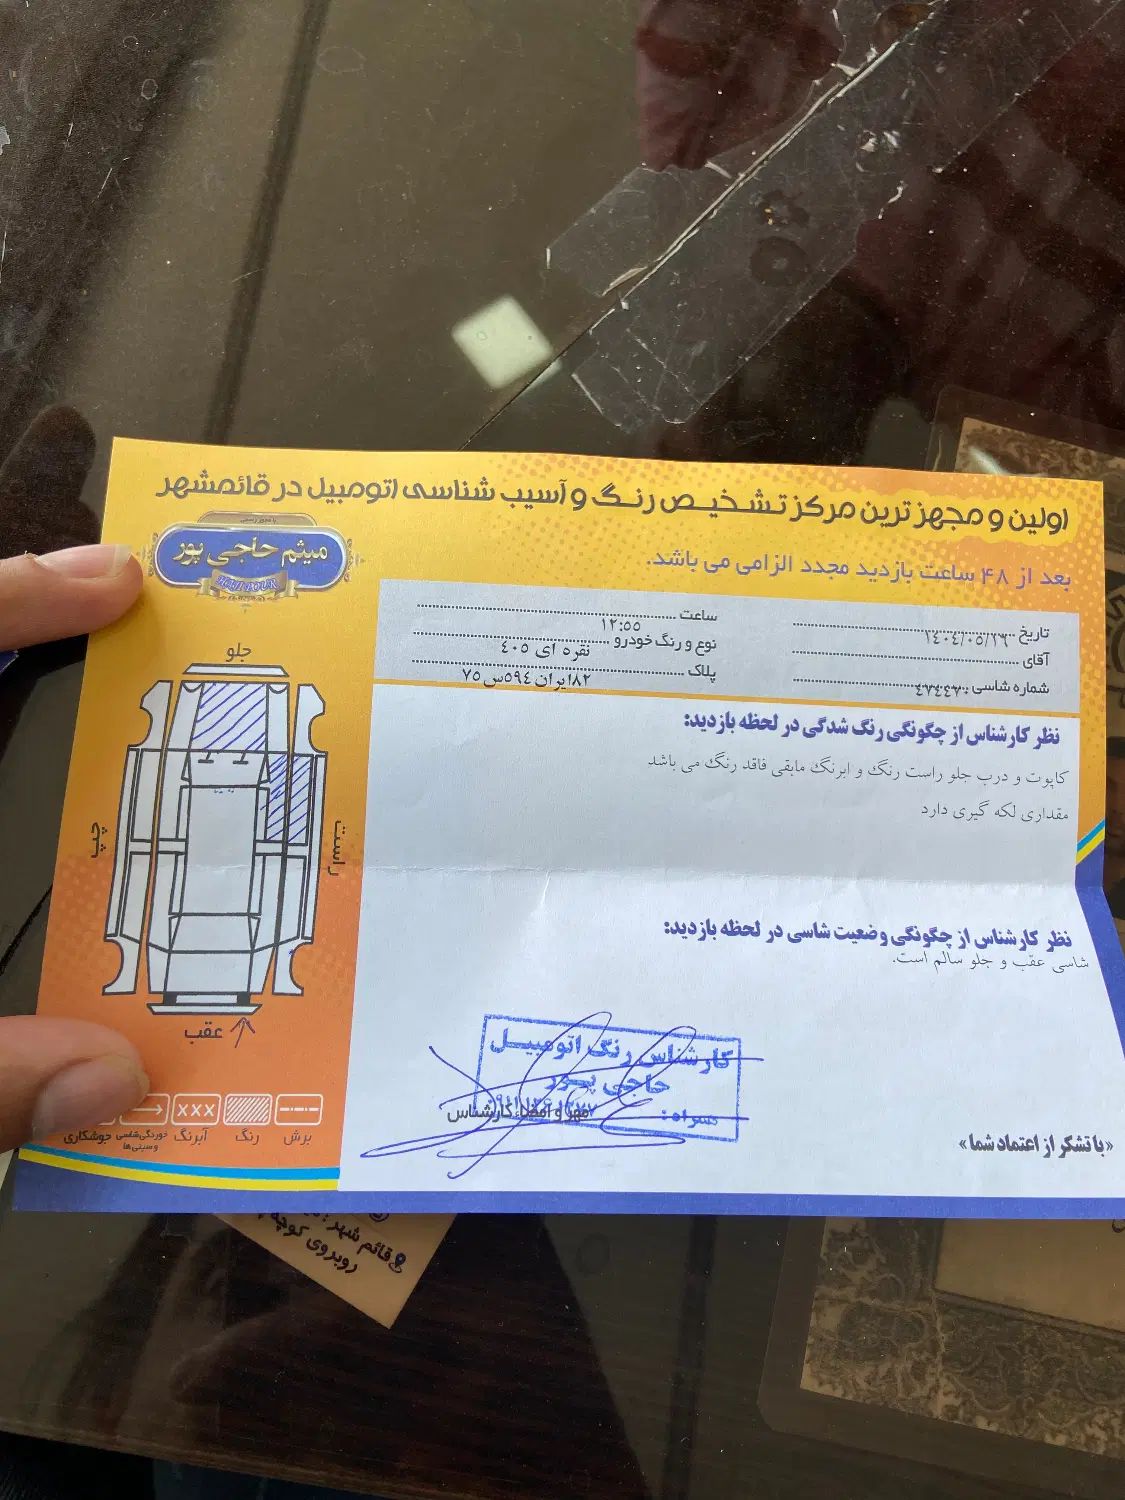 اولین و مجهز ترین مرکز تشخیص رنگ و آسیب شناسی اتومبیل در قائمشهر
میثم حاجی پور
HAJI POUR
بعد از ۴۸ ساعت بازدید مجدد الزامی می باشد.
تاریخ ۱۴۰۴/۰۵/۲۶
ساعت ۱۲:۵۵
آقای
نوع و رنگ خودرو نقره ای ۴۰۵
شماره شاسی ۴۷۴۴۷۰
پلاک ۸۲ایران ۵۹۴س۷۵
نظر کارشناس از چگونگی رنگ شدگی در لحظه بازدید:
کاپوت و درب جلو راست رنگ و ابرنگ مابقی فاقد رنگ می باشد
مقداری لکه گیری دارد
نظر کارشناس از چگونگی وضعیت شاسی در لحظه بازدید:
شاسی عقب و جلو سالم است.
جلو
چپ
راست
عقب
کارشناس رنگ اتومبیل
حاجی پور
همراه:
مهر و امضاء کارشناس
«با تشکر از اعتماد شما»
XXX
برش
رنگ
آبرنگ
خوردگی شاسی و سینی ها
جوشکاری
قائم شهر
روبروی کوچه